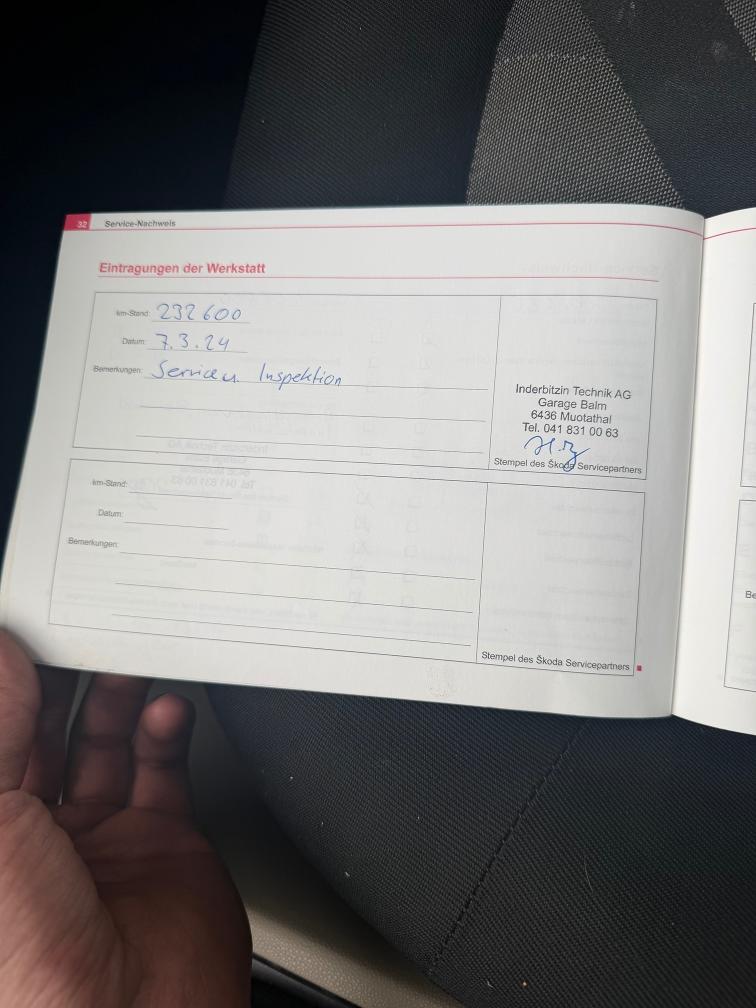 32 Service-Nachweis
Eintragungen der Werkstatt
km-Stand: 232600
Datum: 7.3.24
Bemerkungen: Service u. Inspektion
Inderbitzin Technik AG
Garage Balm
6436 Muotathal
Tel. 041 831 00 63
Stempel des Škoda Servicepartners
km-Stand:
Datum:
Bemerkungen:
Stempel des Škoda Servicepartners
Be